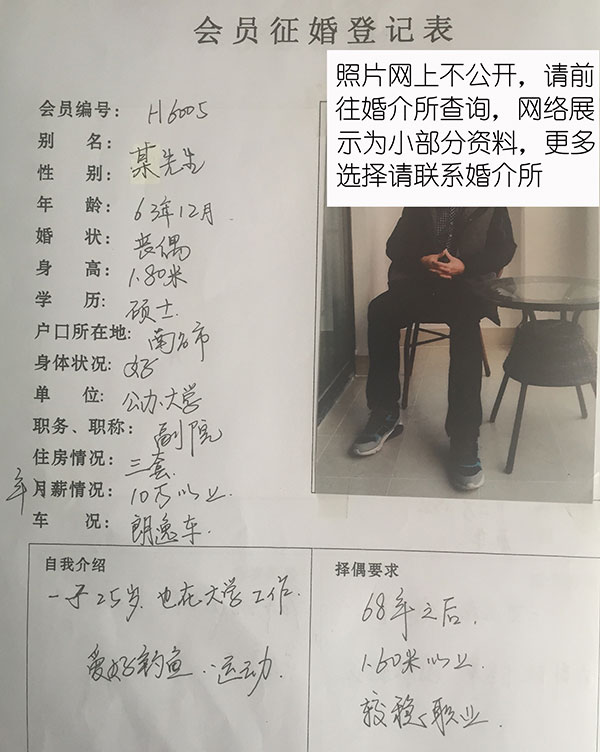 会员征婚登记表
照片网上不公开，请前
往婚介所查询，网络展
示为小部分资料，更多
选择请联系婚介所
会员编号： H6005
别 名：
性 别： 某先生
年 龄： 63年12月.
婚 状： 丧偶
身 高： 1.80米
学 历： 硕士
户口所在地: 南名市
身体状况: 好
单 位: 公办大学
职务、职称: 副院
住房情况: 三套.
年月薪情况: 10万以上.
车 况: 朗逸车.
自我介绍
一子25岁.也在大学工作.
爱好钓鱼、运动.
择偶要求
68年之后.
1.60米以上.
较稳、职业.